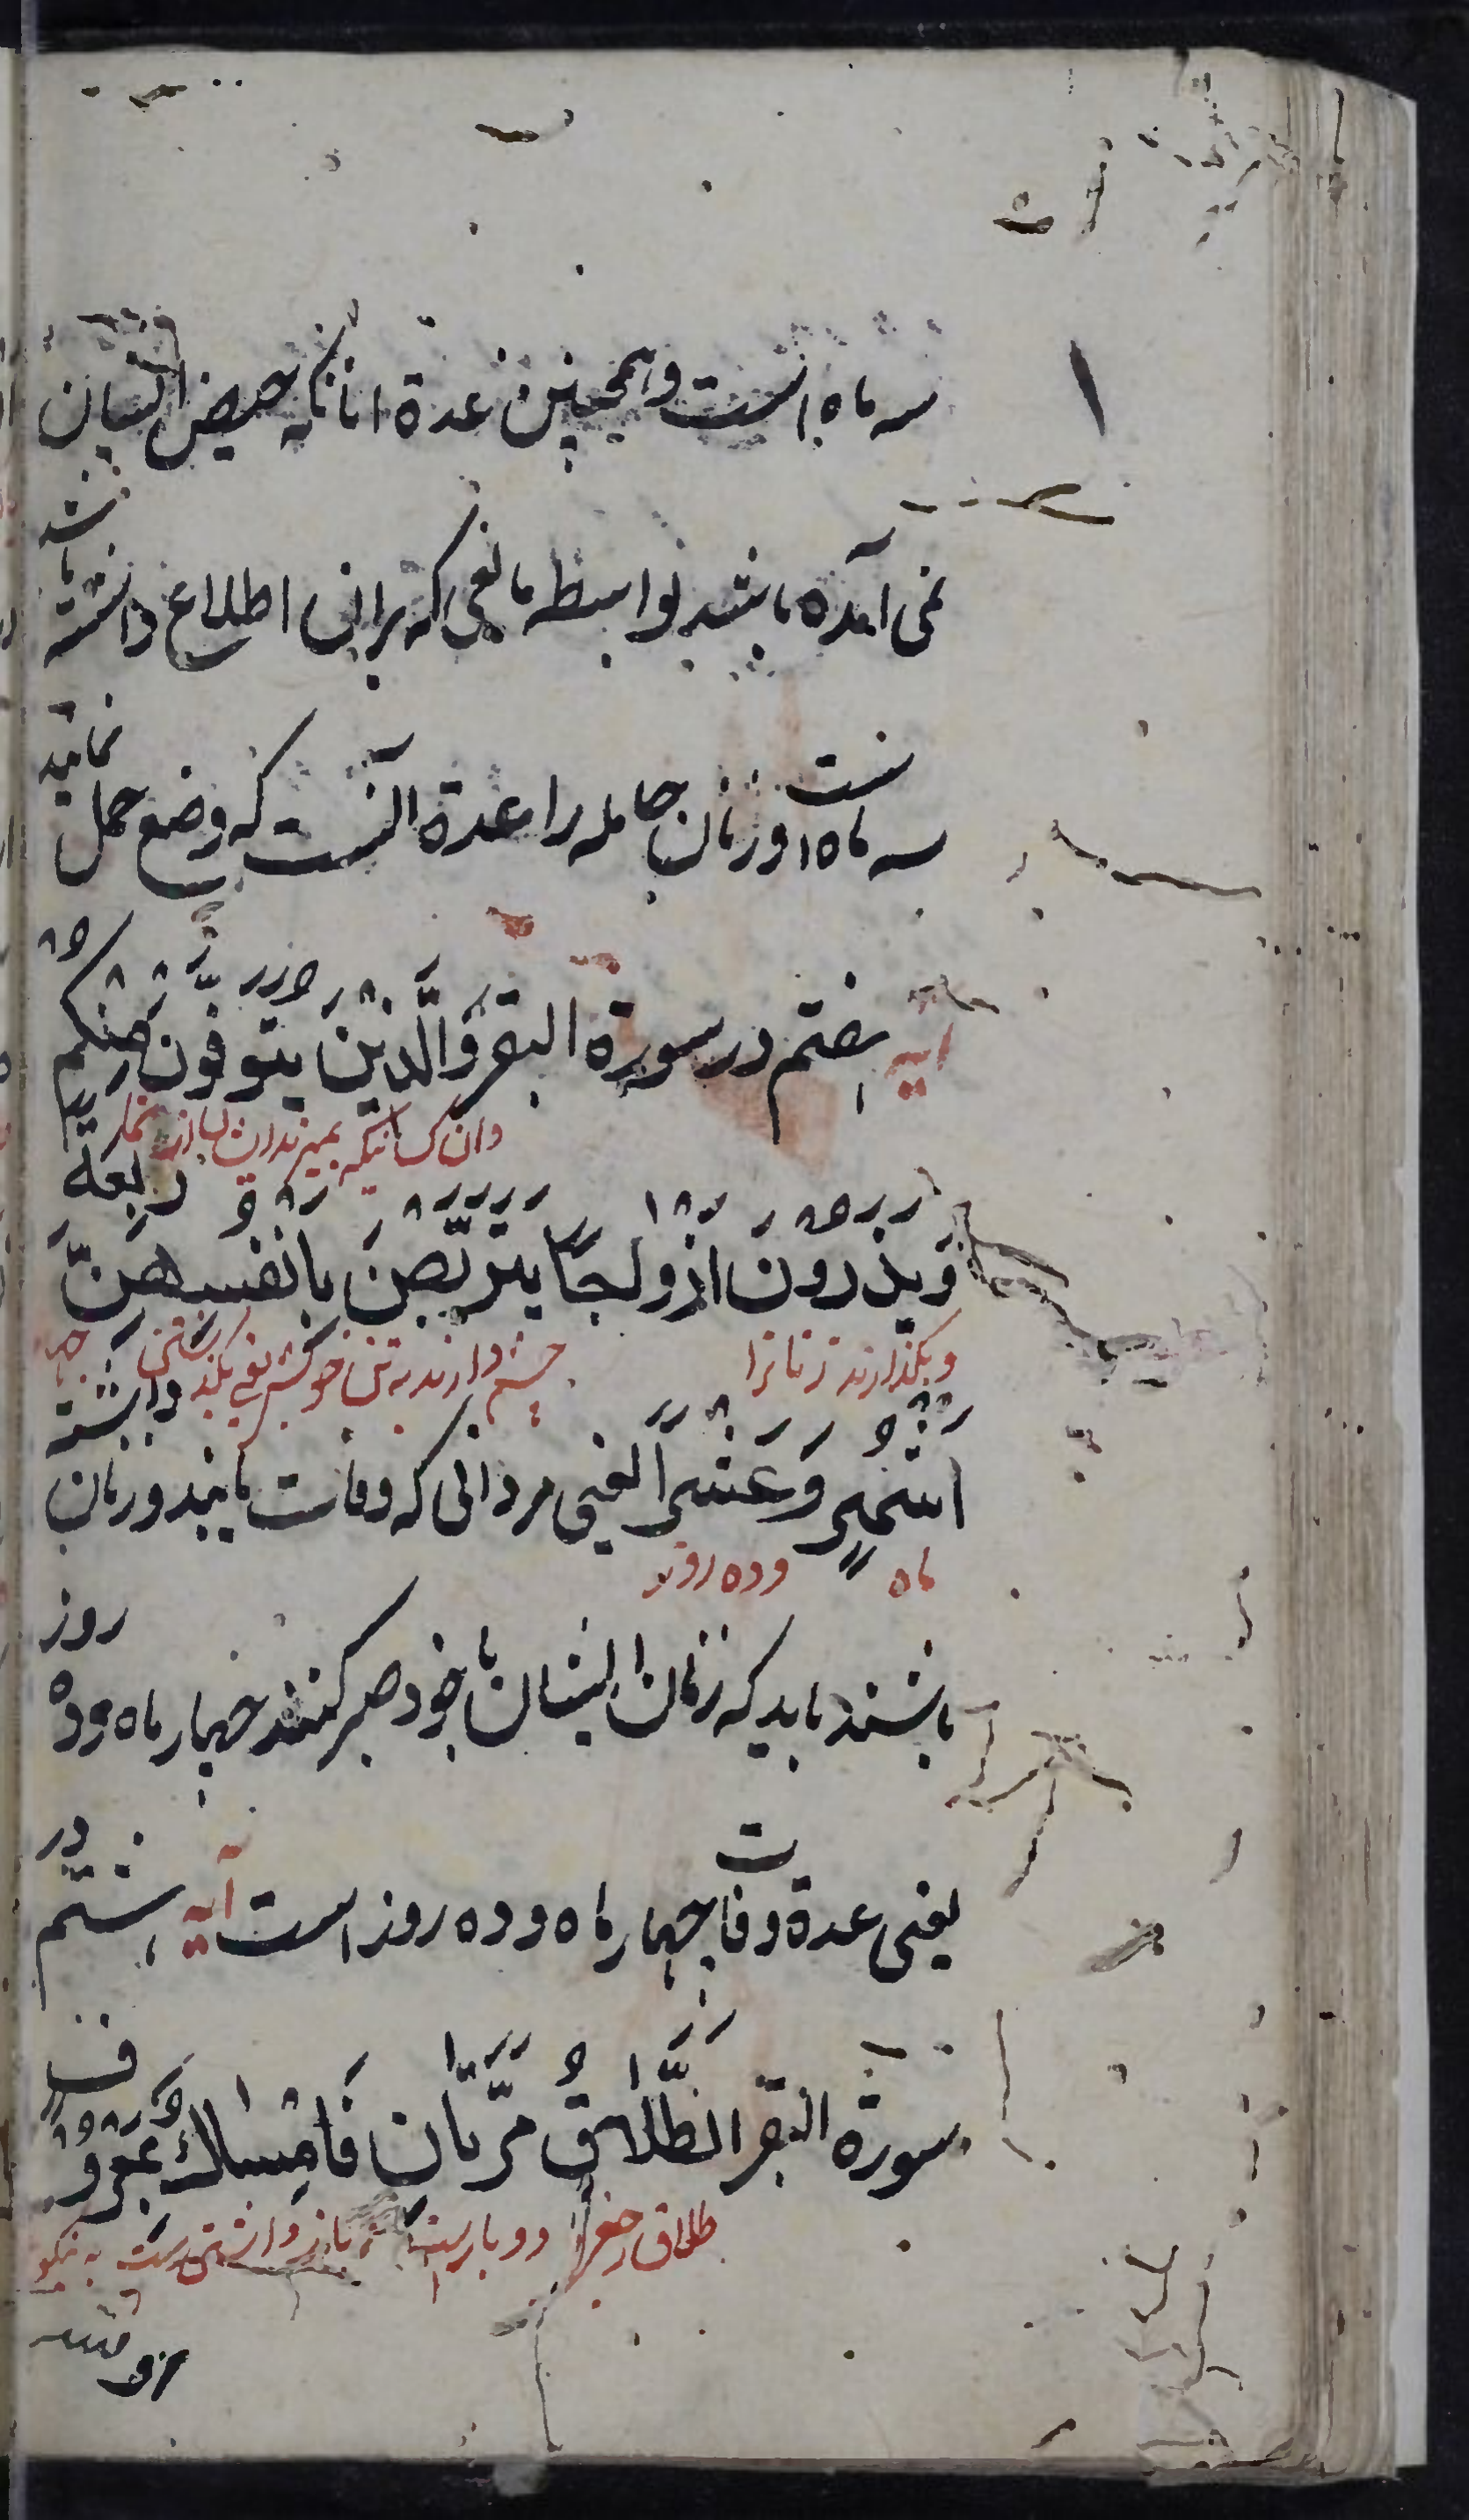 سه ماه است و همچنین عدة آنانکه حیض ایشان
نمی آمده باشد بواسطه مانعی که بران اطلاع داشته باشند
سه ماه است و زنان حامله را عدة آنست که وضع حمل نمایند
آیه هفتم در سورة البقر وَالَّذِینَ یُتَوَفَّوْنَ مِنْکُمْ
وان کسانیکه بمیرند از شما
وَیَذَرُونَ اَزْوَاجًا یَتَرَبَّصْنَ بِاَنْفُسِهِنَّ اَرْبَعَةَ
و بگذارند زنانرا چشم دارند به تن خویش
اَشْهُرٍ وَعَشْرًا یعنی مردانی که وفات یابند و زنان داشته
ماه و ده روز
باشند باید که زنان ایشان با خود صبر کنند چهار ماه و ده روز
یعنی عدة وفات چهار ماه و ده روز است آیه هشتم در
سورة البقر اَلطَّلَاقُ مَرَّتَانِ فَاِمْسَاكٌ بِمَعْرُوفٍ
طلاق رجعی دو بار است باز داشتن است به نیکو